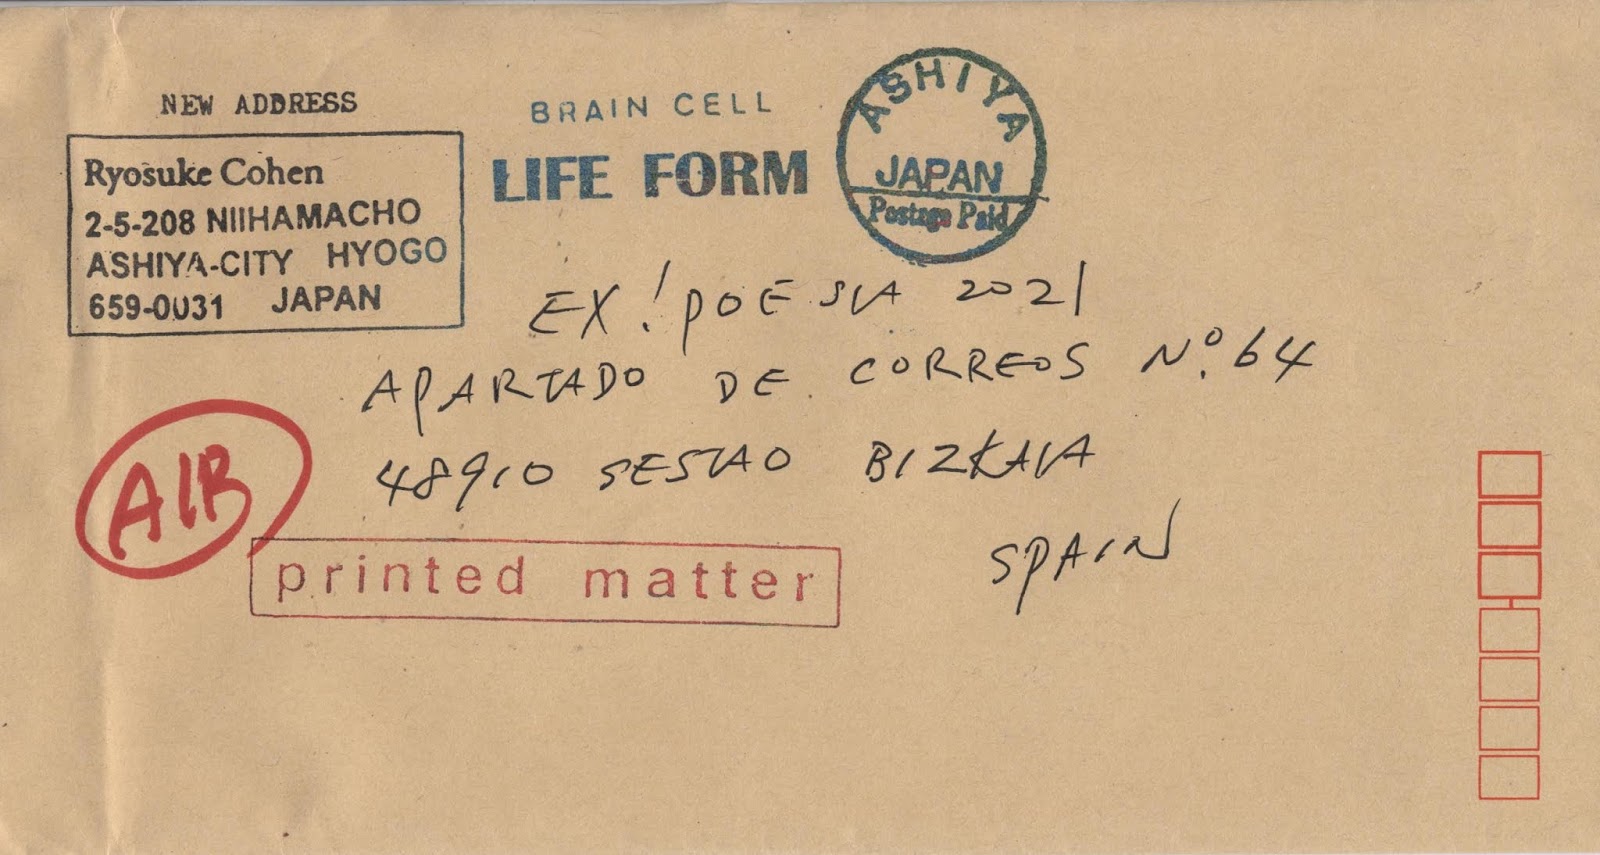 NEW ADDRESS
Ryosuke Cohen
2-5-208 NIIHAMACHO
ASHIYA-CITY HYOGO
659-0031 JAPAN
BRAIN CELL
LIFE FORM
ASHIYA
JAPAN
Postage Paid
EX! POESIA 2021
APARTADO DE CORREOS Nº.64
48910 SESTAO BIZKAIA
SPAIN
AIR
printed matter